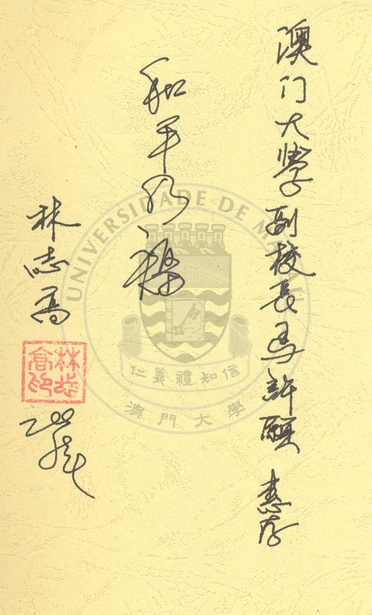 澳门大學副校長馬許願 惠存
和平 福
林志高
林志高印
UNIVERSIDADE DE MACAU
仁義禮知信
澳門大學